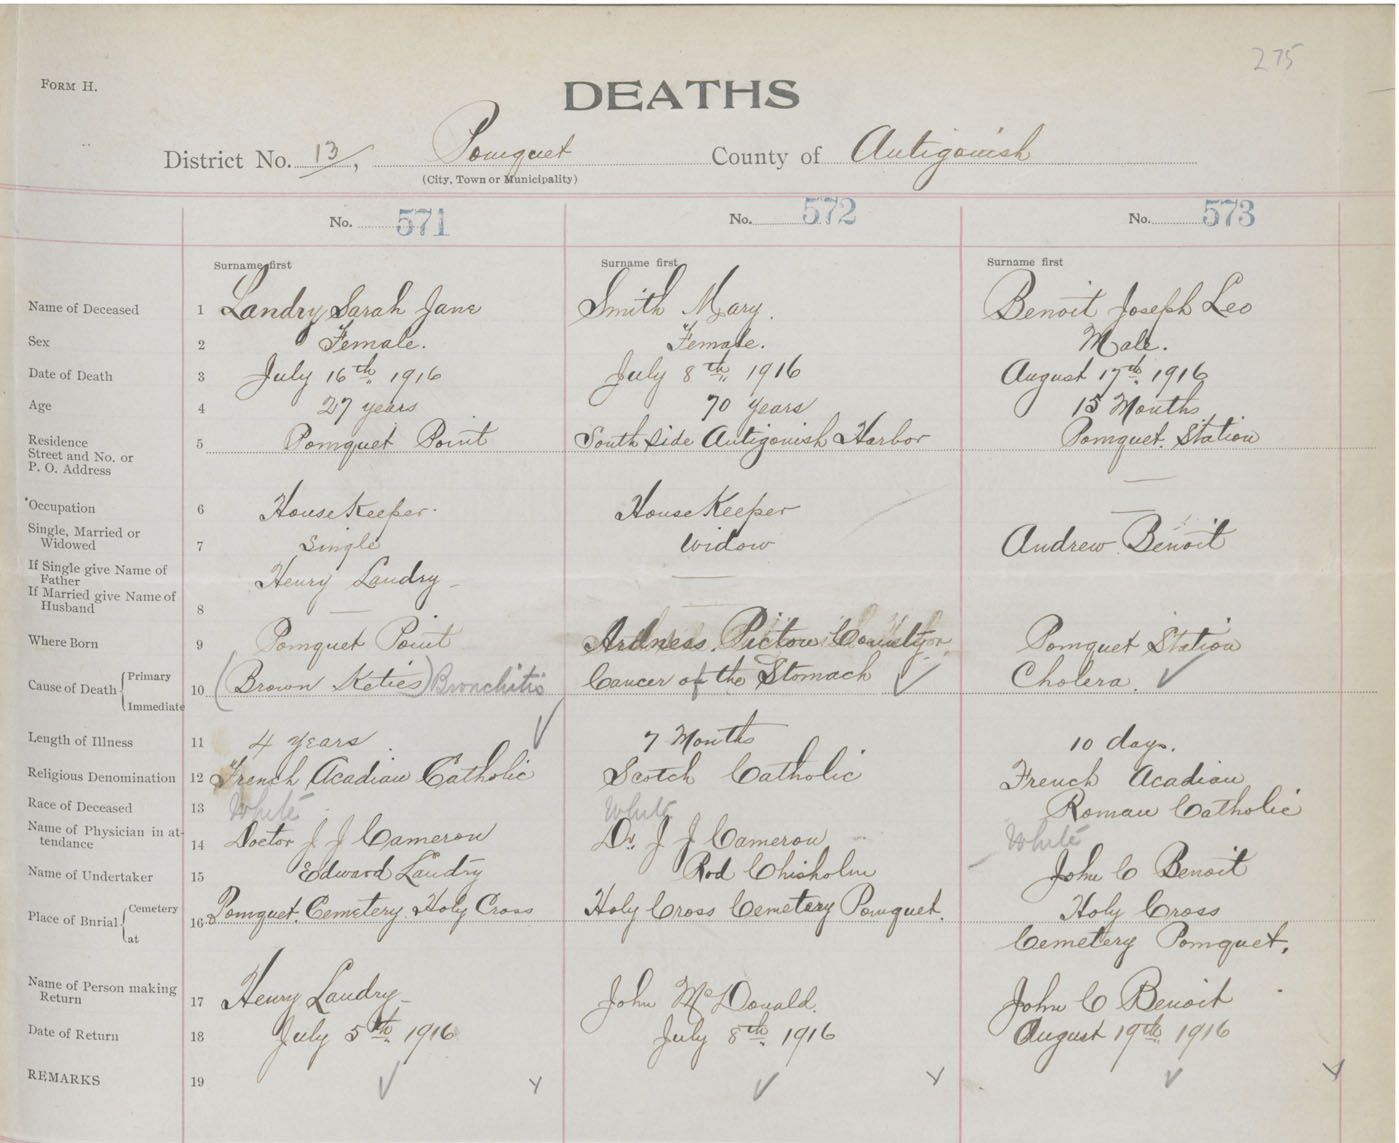 275
FORM H.
DEATHS
District No. 13, Pomquet County of Antigonish
(City, Town or Municipality)
No. 571 No. 572 No. 573
Surname first Surname first Surname first
Name of Deceased 1 Landry Sarah Jane Smith Mary. Benoit Joseph Leo
Sex 2 Female. Female. Male.
Date of Death 3 July 16th 1916 July 8th 1916 August 17th 1916
Age 4 27 years 70 years 15 Months
Residence Street and No. or P. O. Address 5 Pomquet Point South Side Antigonish Harbor Pomquet Station
Occupation 6 House Keeper. House Keeper —
Single, Married or Widowed 7 Single Widow — Andrew Benoit
If Single give Name of Father Henry Landry — —
If Married give Name of Husband 8 — —
Where Born 9 Pomquet Point Ardness. Pictou County Pomquet Station
Cause of Death { Primary Immediate 10 (Brown Keties) Bronchitis Cancer of the Stomach ✓ Cholera. ✓
Length of Illness 11 4 years ✓ 7 Months 10 days.
Religious Denomination 12 French Acadian Catholic Scotch Catholic French Acadian
Race of Deceased 13 White White Roman Catholic
White
Name of Physician in attendance 14 Doctor J J Cameron Dr. J J Cameron —
Name of Undertaker 15 Edward Landry Rod Chisholm John C Benoit
Place of Burial { Cemetery at 16 Pomquet Cemetery Holy Cross Holy Cross Cemetery Pomquet. Holy Cross
Cemetery Pomquet.
Name of Person making Return 17 Henry Landry — John McDonald. John C Benoit
Date of Return 18 July 5th 1916 July 8th 1916 August 19th 1916
REMARKS 19 ✓ x ✓ x ✓ x